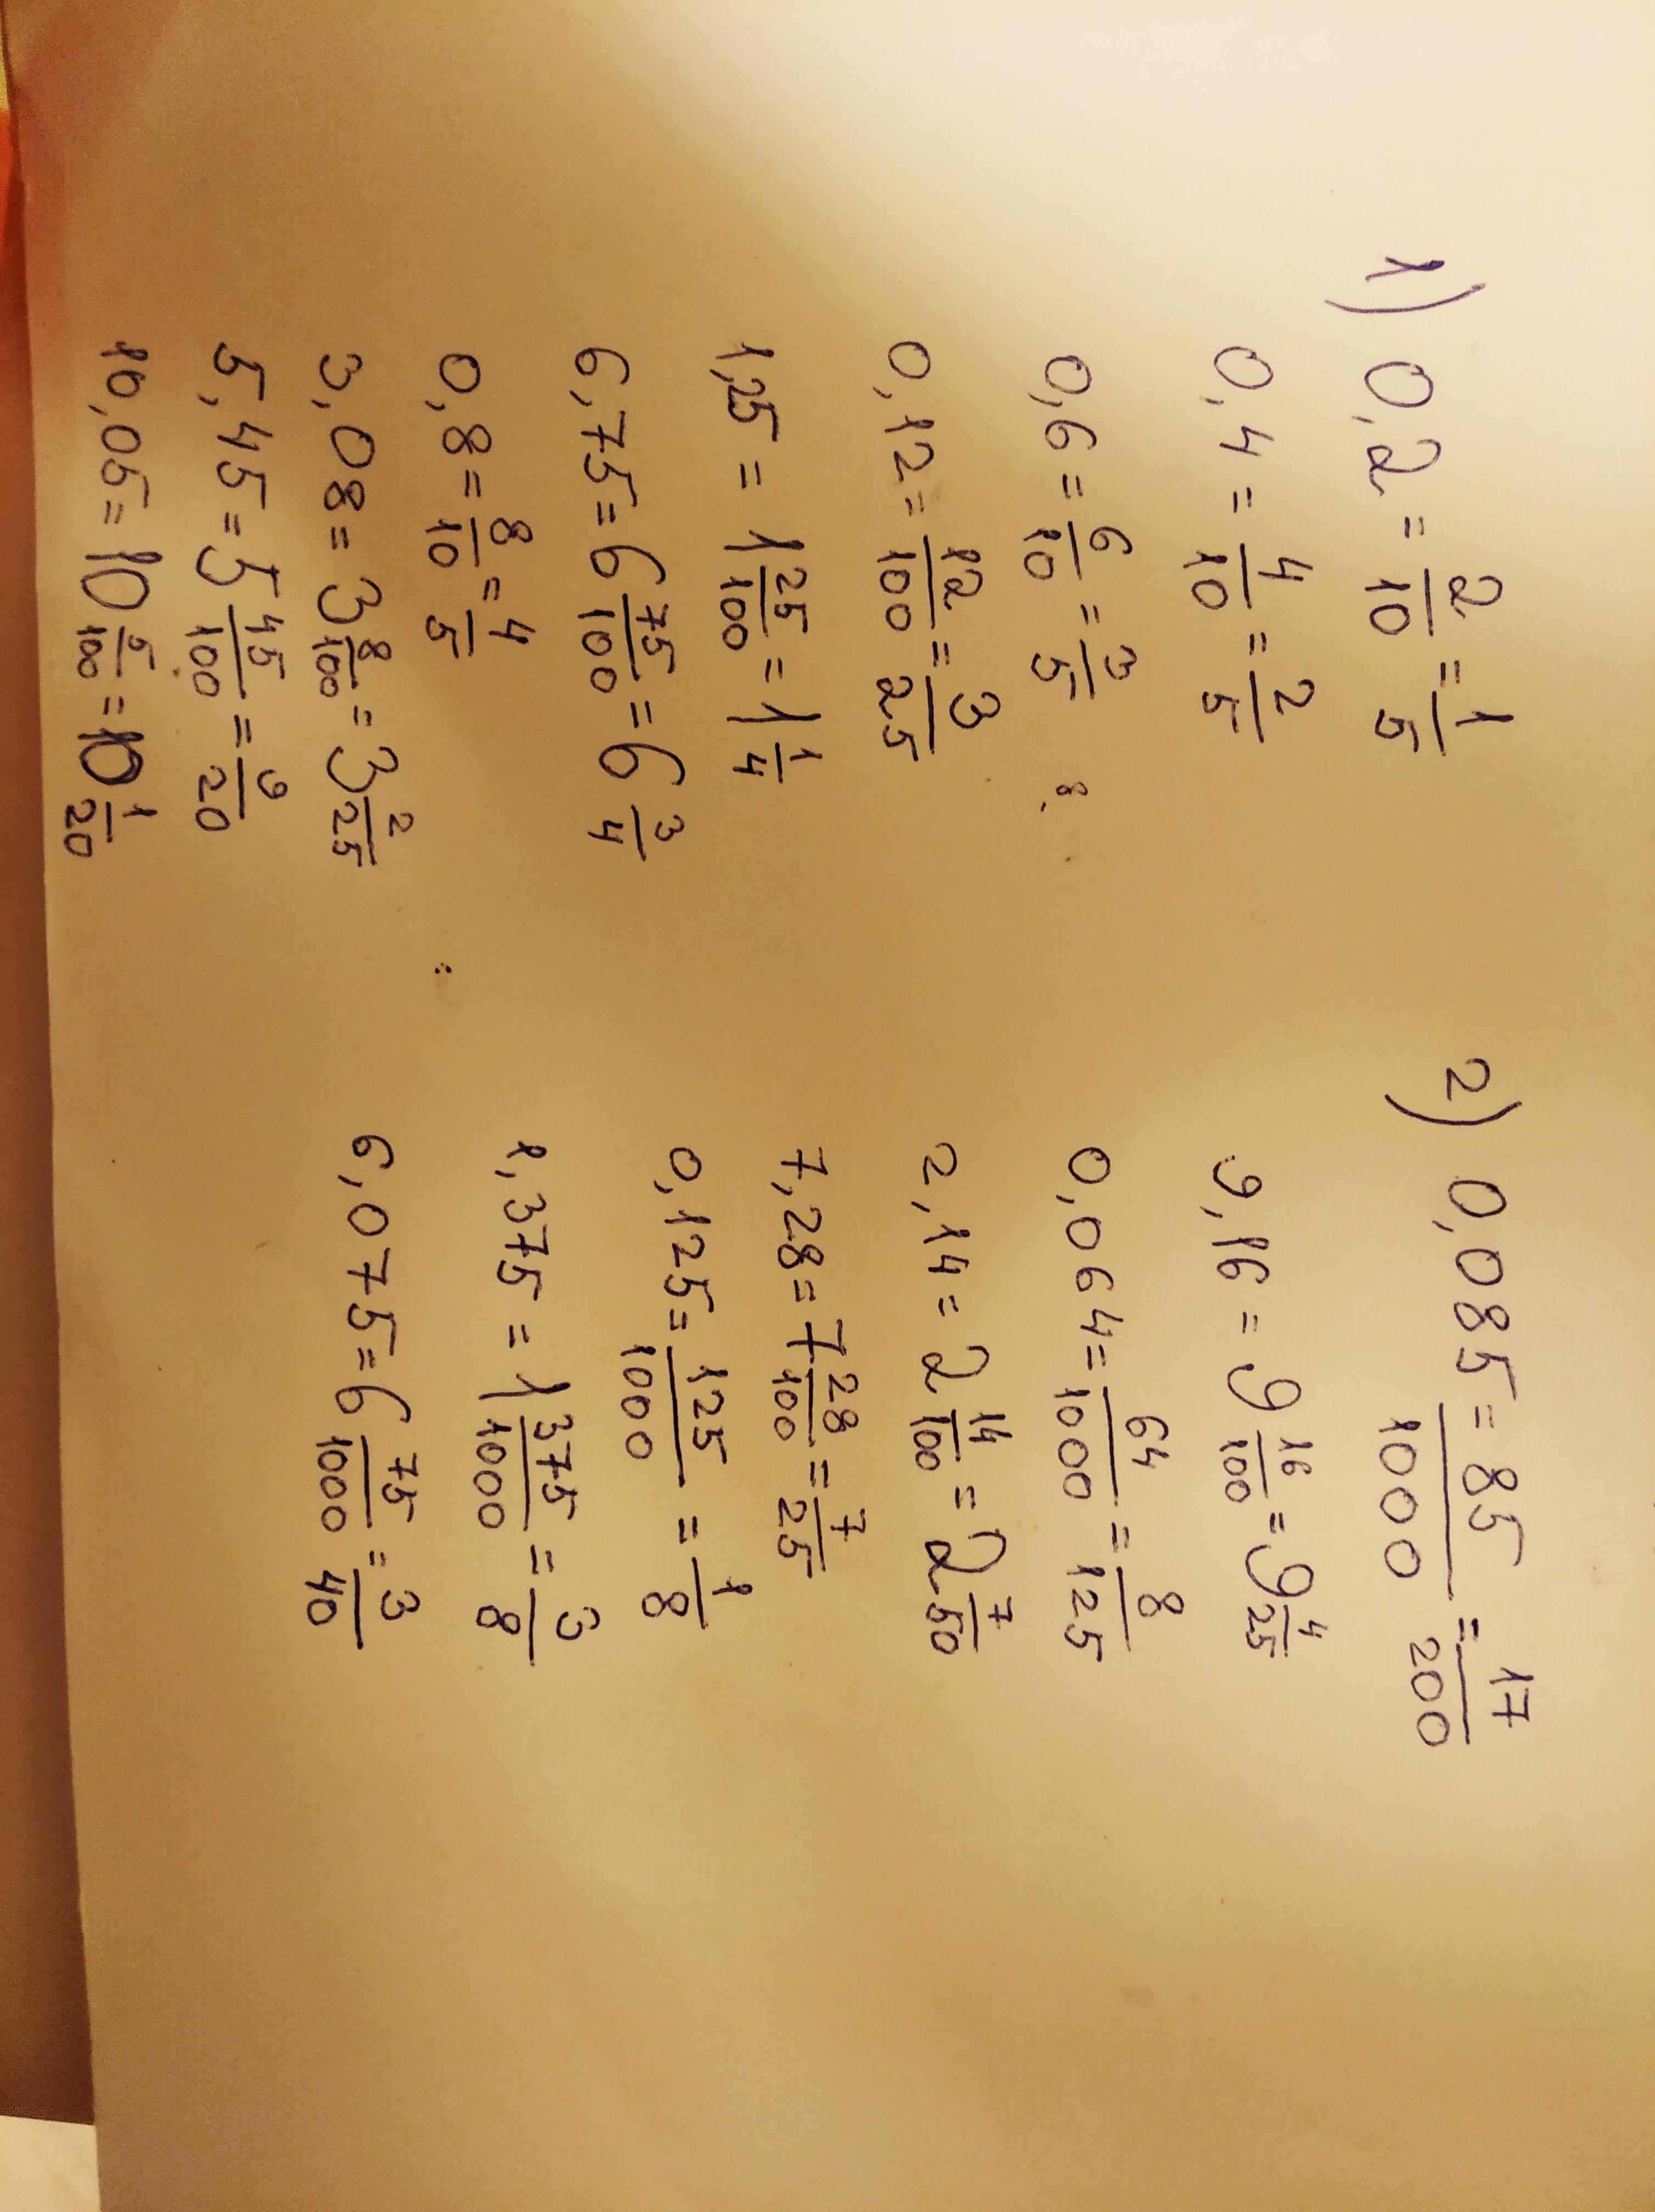 1) 0,2 = 2/10 = 1/5
0,4 = 4/10 = 2/5
0,6 = 6/10 = 3/5
0,12 = 12/100 = 3/25
1,25 = 1 25/100 = 1 1/4
6,75 = 6 75/100 = 6 3/4
0,8 = 8/10 = 4/5
3,08 = 3 8/100 = 3 2/25
5,45 = 5 45/100 = 9/20
10,05 = 10 5/100 = 10 1/20
2) 0,085 = 85/1000 = 17/200
9,16 = 9 16/100 = 9 4/25
0,064 = 64/1000 = 8/125
2,14 = 2 14/100 = 2 7/50
7,28 = 7 28/100 = 7/25
0,125 = 125/1000 = 1/8
1,375 = 1 375/1000 = 3/8
6,075 = 6 75/1000 = 3/40